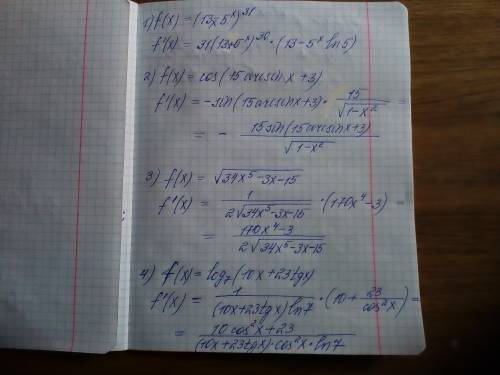 1) f(x) = (13x-5^x)^31
f'(x) = 31(13x-5^x)^30 · (13-5^x ln5)
2) f(x) = cos(15arcsinx+3)
f'(x) = -sin(15arcsinx+3) · 15/√(1-x²) =
= - 15sin(15arcsinx+3)/√(1-x²)
3) f(x) = √(34x⁵-3x-15)
f'(x) = 1/(2√(34x⁵-3x-15)) · (170x⁴-3) =
= (170x⁴-3)/(2√(34x⁵-3x-15))
4) f(x) = log₇(10x+23tgx)
f'(x) = 1/((10x+23tgx)ln7) · (10+23/cos²x) =
= (10cos²x+23)/((10x+23tgx)·cos²x·ln7)